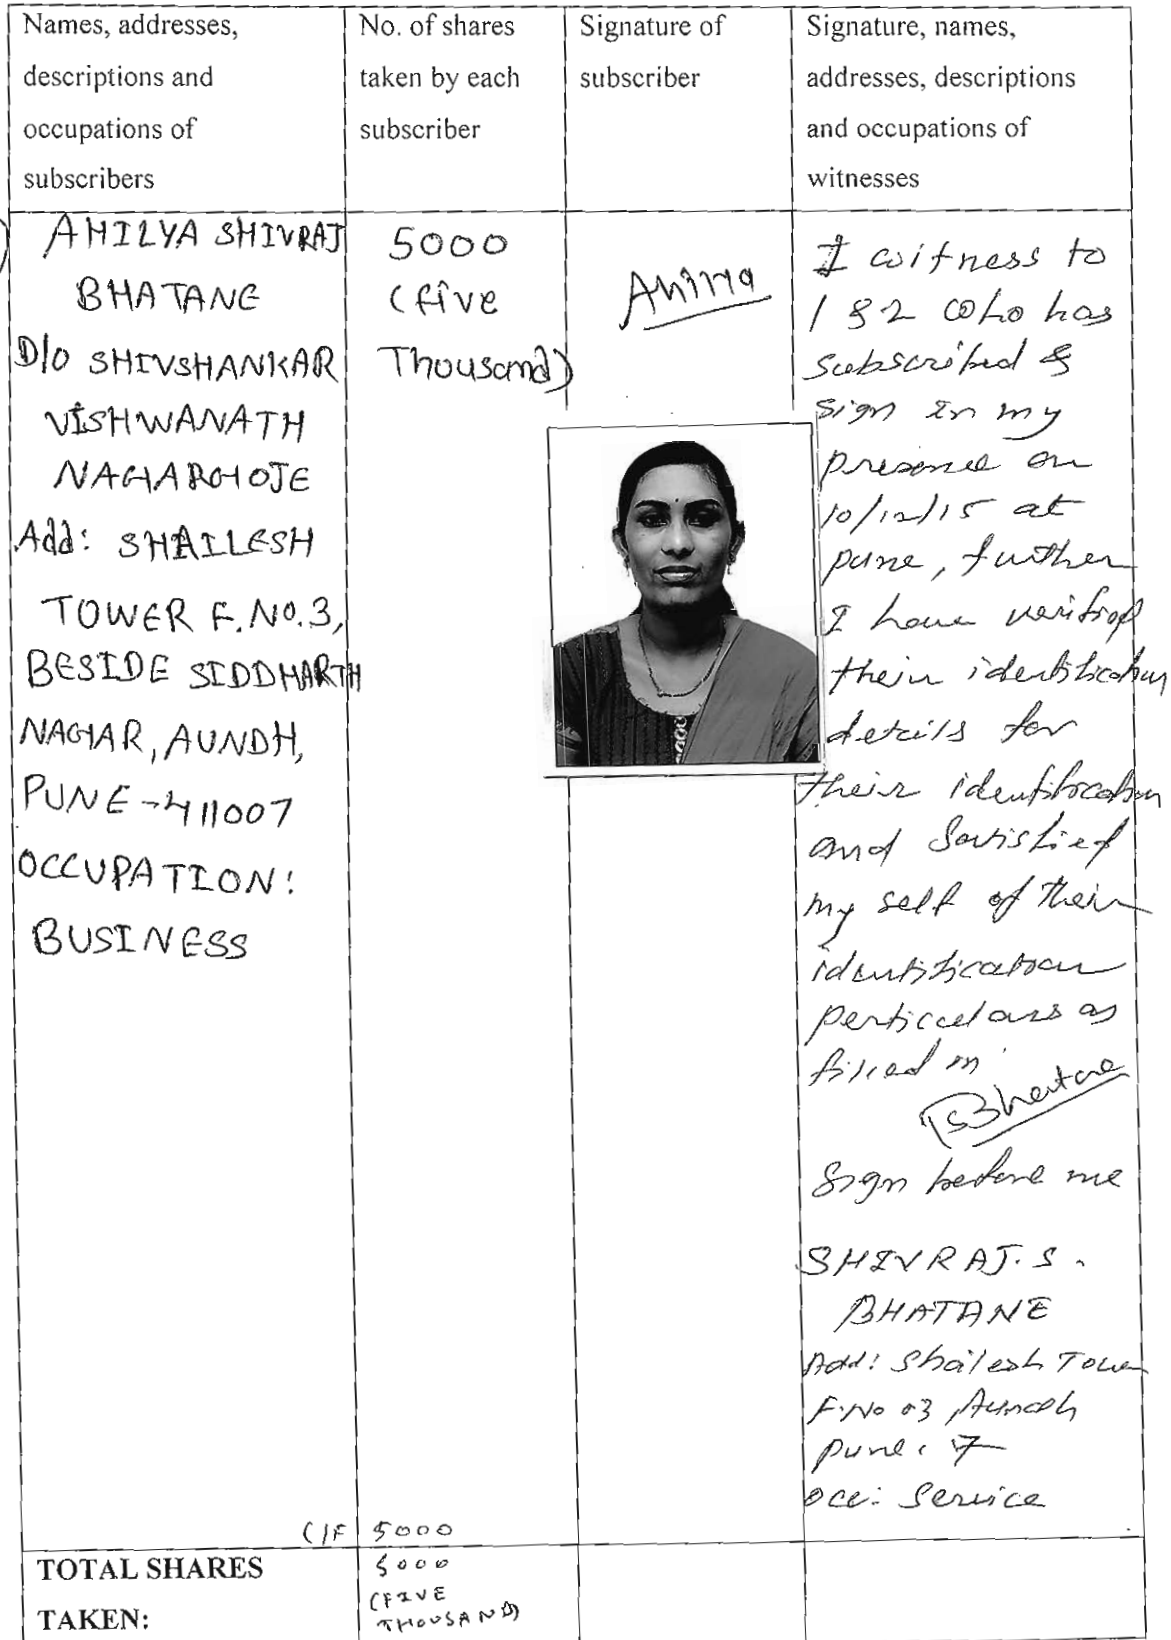 Names, addresses,
descriptions and
occupations of
subscribers
No. of shares
taken by each
subscriber
Signature of
subscriber
Signature, names,
addresses, descriptions
and occupations of
witnesses
AHILYA SHIVRAJ
BHATANE
D/o SHIVSHANKAR
VISHWANATH
NAGARGOJE
Add: SHAILESH
TOWER F.NO.3,
BESIDE SIDDHARTH
NAGAR, AUNDH,
PUNE-411007
OCCUPATION:
BUSINESS
5000
(five
Thousand)
I witness to
1 & 2 who has
subscribed &
sign in my
presence on
10/12/15 at
pune, further
I have verified
their identification
details for
their identification
and Satisfied
my self of their
identification
perticulars as
filled in
SBhatane
Sign before me
SHIVRAJ.S.
BHATANE
Add: Shailesh Tower
F.No 03, Aundh
pune. 7
occ: Service
C/F 5000
TOTAL SHARES
TAKEN:
5000
(FIVE
THOUSAND)